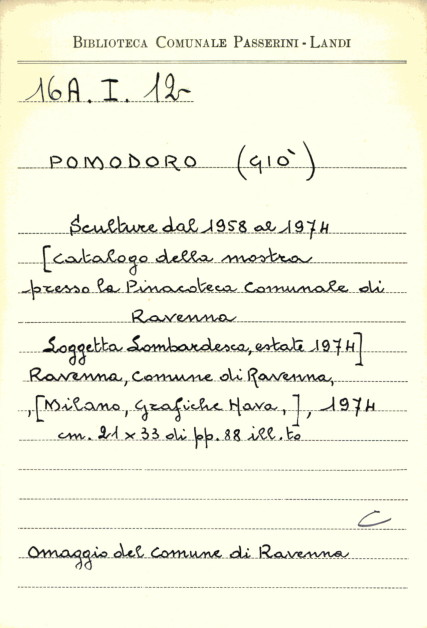 BIBLIOTECA COMUNALE PASSERINI - LANDI
16A. I. 12
POMODORO (GIÒ)
Sculture dal 1958 al 1974
[catalogo della mostra
presso la Pinacoteca Comunale di
Ravenna
Loggetta Lombardesca, estate 1974]
Ravenna, Comune di Ravenna,
,[Milano, Grafiche Nava,], 1974
cm. 21 x 33 di pp. 88 ill.to
C
Omaggio del Comune di Ravenna